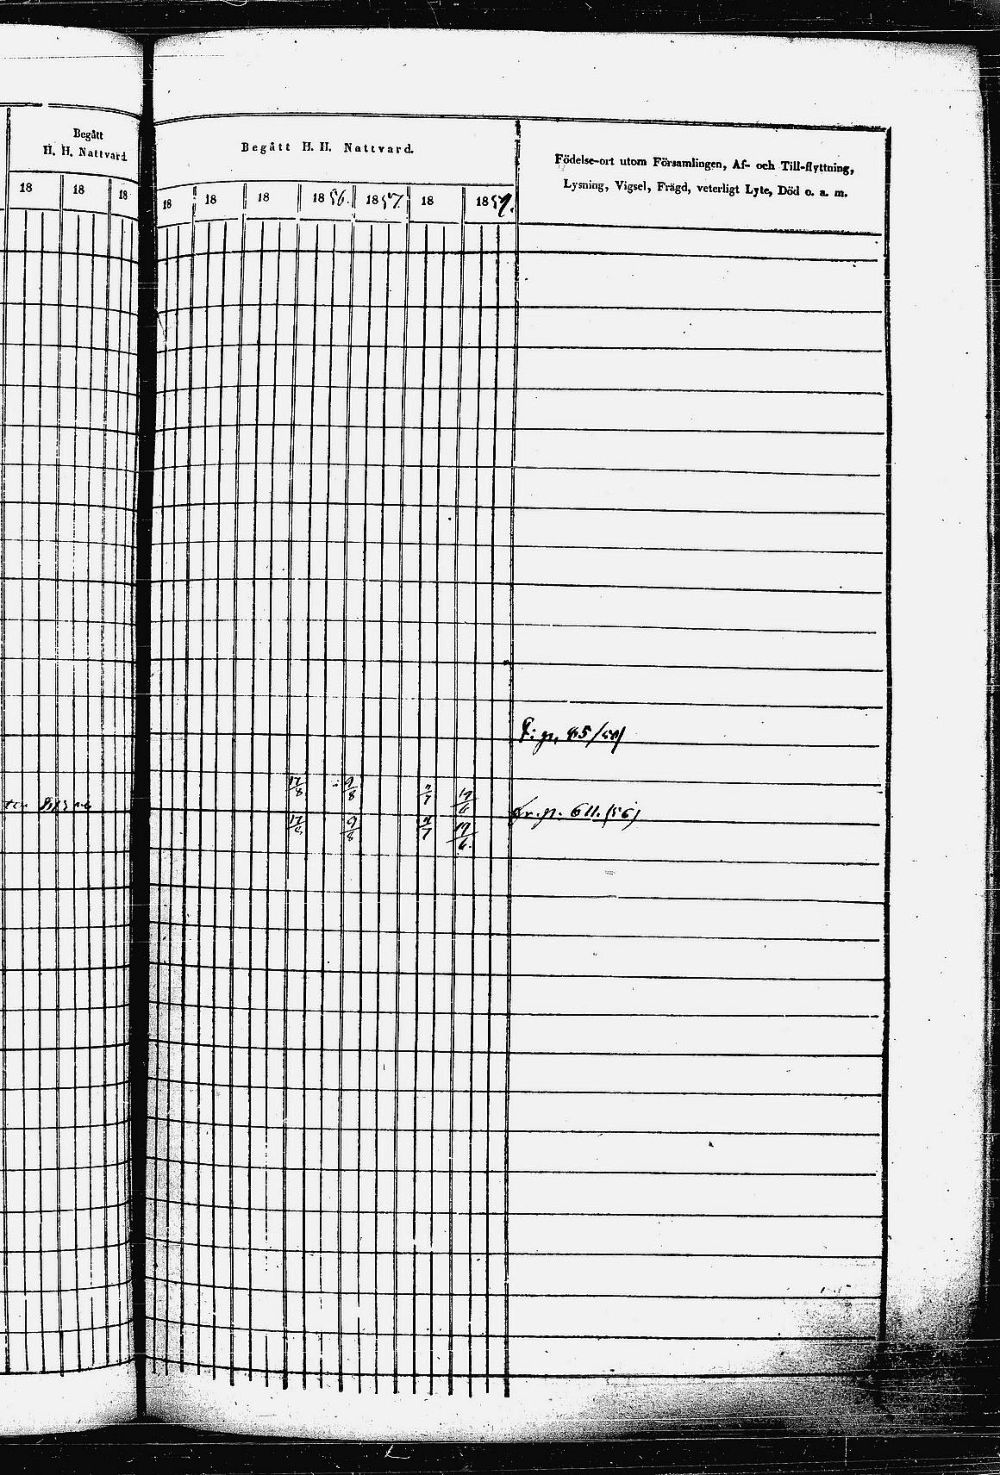 Begått
H. H. Nattvard
18 18 18
Begått H. H. Nattvard.
18 18 18 18 56. 18 57. 18 18 59.
Födelse-ort utom Församlingen, Af- och Till-flyttning,
Lysning, Vigsel, Frägd, veterligt Lyte, Död o. a. m.
17/8 9/8 19/6
Fr. p. 611. (56)
17/8 9/8 19/6.